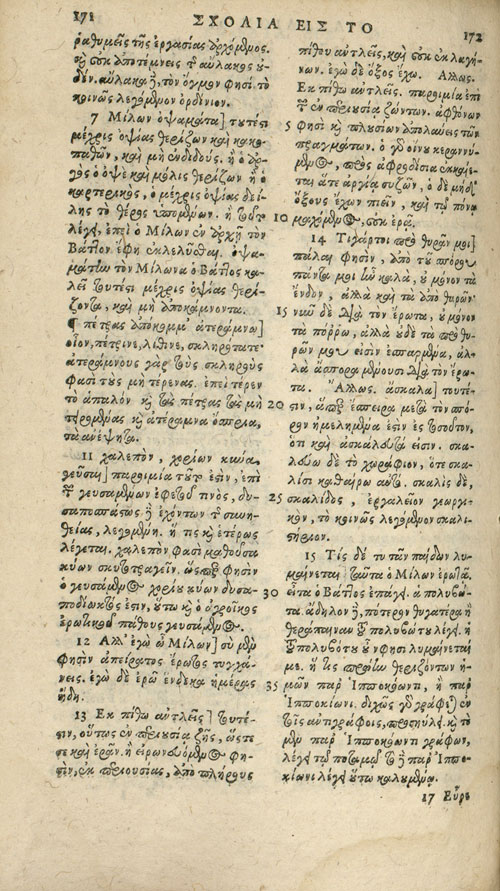 171
ΣΧΟΛΙΑ ΕΙΣ ΤΟ
172
ῥαθυμεῖς τῆς ἐργασίας ἀρχόμενος.
καὶ οὐκ ἀποτέμνεις τ αὔλακος οὐ-
δέν. αὔλακα δ, τὸν ὄγμον φησί. τὸ
κοινῶς λεγόμενον ὀρδένιον.
7 Μίλων ὀψαμάτα] τουτέστι
μέχρις ὀψίας θερίζων καὶ κακο-
παθῶν, καὶ μὴ ἐνδιδούς. ἢ ὁ ἀρ-
γὸς ὁ ὀψὲ καὶ μόλις θερίζων ἢ ὁ
καρτερικὸς, ὁ μέχρις ὀψίας δεί-
λης τὸ θέρος ὑπομένων. ἢ τοῦτο
λέγει, ἐπεὶ ὁ Μίλων ἐν ἀρχῇ τὸν
Βάττον ἔφη ἐκλελύσθαι. ὀψα-
μάτην τὸν Μίλωνα ὁ Βάττος κα-
λεῖ τουτέστι μέχρις ὀψίας θερί-
ζοντα, καὶ μὴ ἀποκάμνοντα.
¶ πέτρας ἀπόκομμα ἀτεράμνω]
οἷον, πέτρινε, λίθινε, σκληρότατε·
ἀτεράμνους γὰρ τοὺς σκληρούς
φασὶ τοὺς μὴ τέρενας. ἐπεὶ τέρεν
τὸ ἁπαλόν καὶ τὰς πέτρας τὰς μὴ
τειρομένας καὶ ἀτέραμνα ὄσπρια,
τὰ ἀνέψητα.
11 χαλεπὸν, χορίων κύνα
γεῦσαι] παροιμία τοῦτ' ἐστὶν, ἐπὶ
τῶν γευσαμένων ἐφετοῦ τινὸς, δυ-
σαποσπάστως δ ἐχόντων τ συνη-
θείας, λεγομένη. ἥ τις καὶ ἑτέρως
λέγεται. χαλεπόν φασὶ μαθοῦσα
κύων σκυτοτραγεῖν. ὥσπερ φησὶν
ὁ γευσάμενος χορίου κύων δυσα-
ποδίωκτός ἐστιν, οὕτω καὶ ὁ ἀγροῖκος
ἐρωτικοῦ πάθους γευσάμενος.
12 Ἀλλ' ἐγὼ ὦ Μίλων] σὺ μὲν
φησὶν ἀπείρατος ἔρωτος τυγχά-
νεις. ἐγὼ δὲ ἐρῶ ἕνδεκα ἡμέρας
ἤδη.
13 Ἐκ πίθω ἀντλεῖς] τουτέ-
στιν, οὕτως ἐν περιουσίᾳ ζῇς, ὥστε
σε καὶ ἐρᾶν. ἢ εἰρωνευόμενος φη-
σὶν, ἐκ περιουσίας, ἀπὸ πλήρους
πίθου ἀντλεῖς, καὶ οὐκ ἐκ λαγή-
νων. ἐγὼ δὲ ὄξος ἔχω. Ἄλλως.
Ἐκ πίθω ἀντλεῖς. παροιμία ἐπὶ
τ ἐν περιουσίᾳ ζώντων. ἀφθόνων
5 φησὶ καὶ πλουσίων ἀπολαύεις τῶν
πραγμάτων. ὁ γὰρ οἴνῳ κεραννύ-
μενος, πρὸς ἀφροδίσια ἐκκαίε-
ται ἅτε ἀργίᾳ συζῶν, ὁ δὲ μηδ'
ὄξους ἔχων πιεῖν, καὶ τῷ πόνῳ
10 μαχόμενος, οὐκ ἐρᾷ.
14 Τιγάρτοι πρὸ θυρᾶν μοι]
πάλαι φησὶν, ἀπὸ τοῦ σπόρου
πάντα μοι ἦν καλὰ, οὐ μόνον τὰ
ἔνδον, ἀλλὰ καὶ τὰ ἀπὸ θυρῶν·
15 νυνὶ δὲ διὰ τὸν ἔρωτα, οὐ μόνον
τὰ πόρρω, ἀλλὰ οὐδὲ τὰ πρὸ θυ-
ρῶν μου εἰσὶν ἐσπαρμένα, ἀλ-
λὰ ἄσπορα μένουσι διὰ τὸν ἔρω-
τα. Ἄλλως. ἄσκαλα] τουτέ-
20 στιν, ἅπερ ἔσπειρα μετὰ τὸν σπό-
ρον ἠμελημένα ἐστὶν ἐς τοσοῦτον,
ὅτι καὶ ἀσκάλευτά εἰσιν. σκα-
λεύω δὲ τὸ χωράφιον, ὅτε σκα-
λίσι καθαίρω αὐτό. σκαλὶς δὲ,
25 σκαλίδος, ἐργαλεῖον γεωργι-
κὸν, τὸ κοινῶς λεγόμενον σκαλι-
στήριον.
15 Τίς δέ τυ τᾶν παίδων λυ-
μαίνεται; ταῦτα ὁ Μίλων ἐρωτᾷ.
30 εἶτα ὁ Βάττος ἐπάγει. ἁ πολυβώ-
τα. ἄδηλον δ, πότερον θυγατέρα ἢ
θεράπαιναν τοῦ πολυβώτου λέγει. ἡ
τοῦ πολυβώτου νῦν φησὶ λυμαίνεταί
με. ἥ τις πρώην θεριζόντων ἡ-
35 μῶν παρ' Ἱπποκόωντι, ἢ παρ'
Ἱπποκίωνι. διχῶς γὰρ γράφεται ἐν
τοῖς ἀντιγράφοις, προσηύλει. καὶ τὸ
μὲν παρ' Ἱπποκόωντι γράφων,
λέγει τῷ ποταμῷ τὸ δ παρ' Ἱππο-
κίωνι λέγει οὕτω καλουμένῳ.
17 Εὗρε